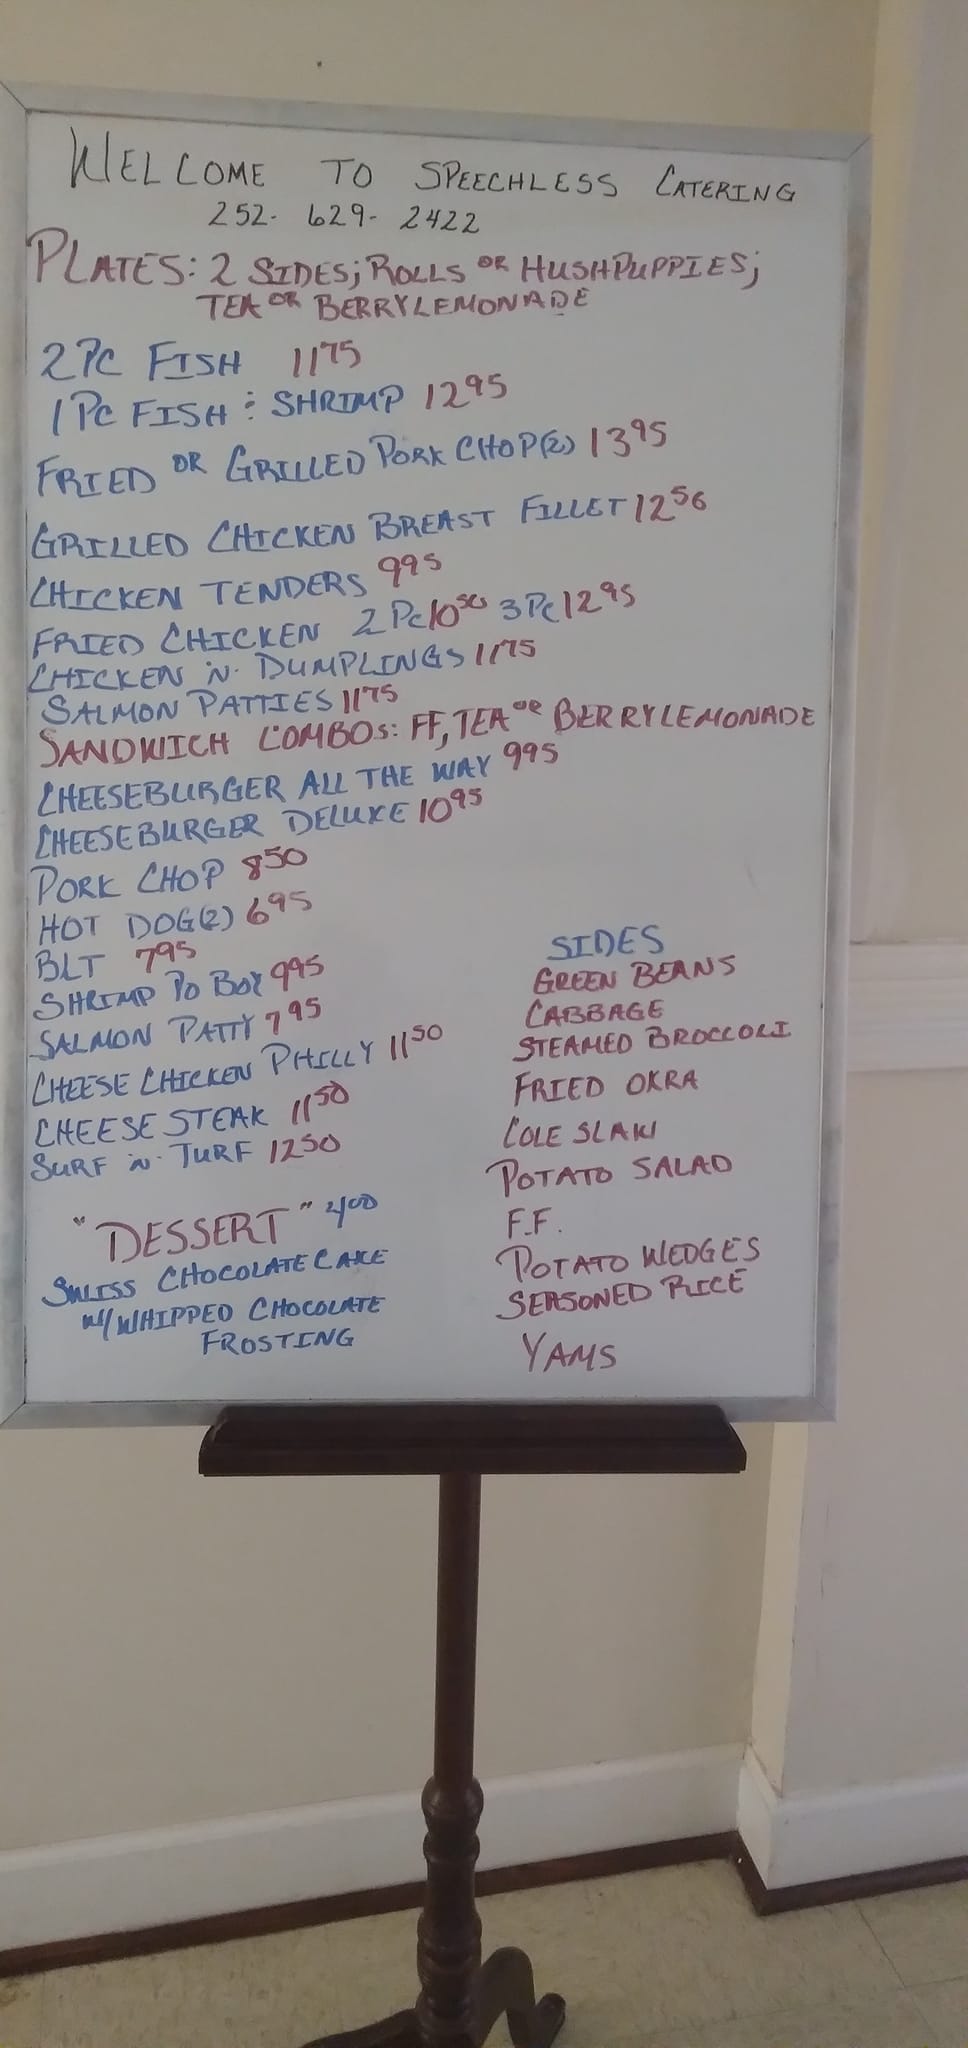 WELCOME TO SPEECHLESS CATERING
252-629-2422
PLATES: 2 SIDES; ROLLS OR HUSHPUPPIES;
TEA OR BERRYLEMONADE
2 PC FISH 11 75
1 PC FISH & SHRIMP 12 95
FRIED OR GRILLED PORK CHOP(2) 13 95
GRILLED CHICKEN BREAST FILLET 12 56
CHICKEN TENDERS 9 95
FRIED CHICKEN 2 PC 10 50 3 PC 12 95
CHICKEN 'N' DUMPLINGS 11 75
SALMON PATTIES 11 75
SANDWICH COMBOS: FF, TEA OR BERRYLEMONADE
CHEESEBURGER ALL THE WAY 9 95
CHEESEBURGER DELUXE 10 95
PORK CHOP 8 50
HOT DOG(2) 6 95
BLT 7 95
SHRIMP PO BOY 9 95
SALMON PATTY 7 95
CHEESE CHICKEN PHILLY 11 50
CHEESE STEAK 11 50
SURF 'N' TURF 12 50
"DESSERT" 4 00
SWISS CHOCOLATE CAKE
W/WHIPPED CHOCOLATE
FROSTING
SIDES
GREEN BEANS
CABBAGE
STEAMED BROCCOLI
FRIED OKRA
COLE SLAW
POTATO SALAD
F.F.
POTATO WEDGES
SEASONED RICE
YAMS